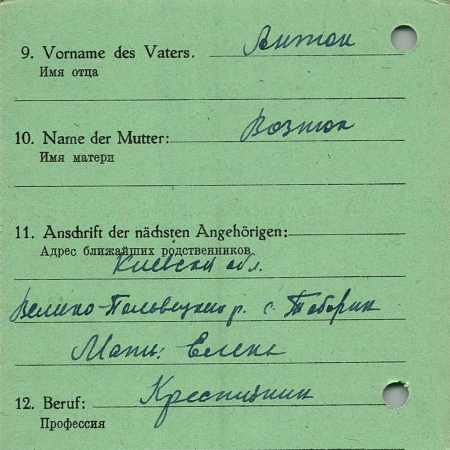 9. Vorname des Vaters. Антон
Имя отца
10. Name der Mutter: Возтон
Имя матери
11. Anschrift der nächsten Angehörigen:
Адрес ближайших родственников
Киевская обл.
Велико-Половецкий р. с.
Мать: Елена
12. Beruf:
Профессия